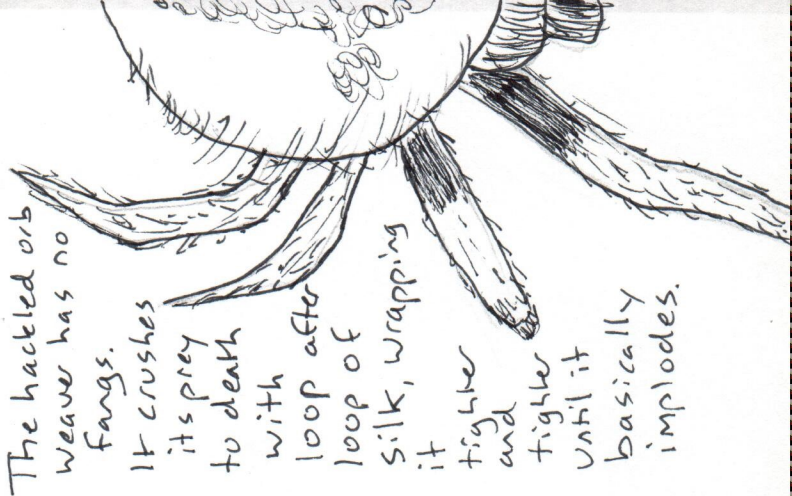 The hackled orb
weaver has no
fangs.
It crushes
its prey
to death
with
loop after
loop of
silk, wrapping
it
tighter
and
tighter
until it
basically
implodes.